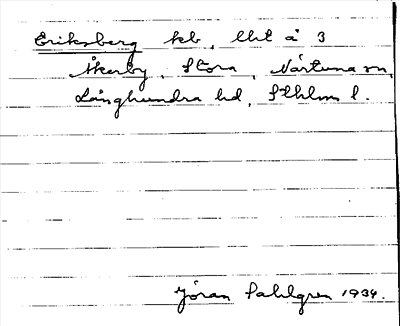 Eriksberg kb, lht å 3
Åkerby, Stora, Närtuna sn,
Långhundra hd, Sthlms l.
Jöran Sahlgren 1934.